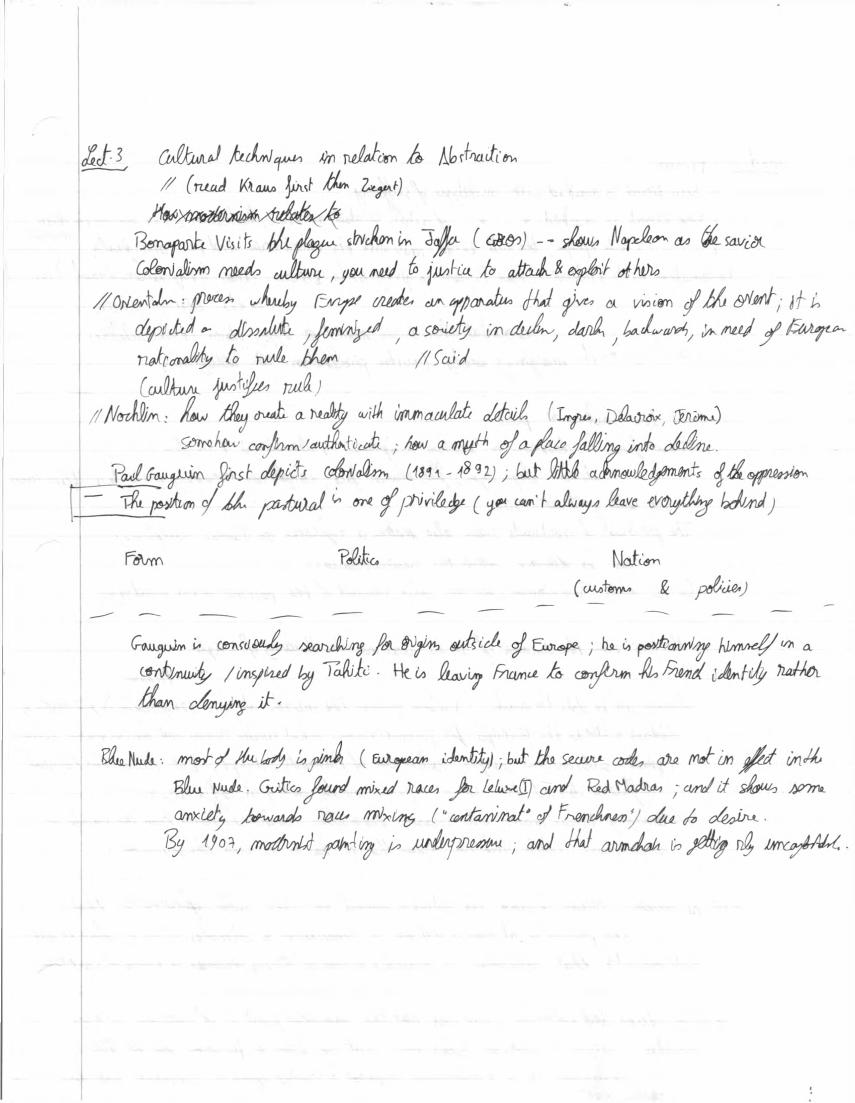 Lect. 3 Cultural techniques in relation to Abstraction
// (read Kraus first then Ziegert)
How modernism relates to
Bonaparte Visits the plague stricken in Jaffa (GROS) -- shows Napoleon as the savior
Colonialism needs culture, you need to justice to attach & exploit others
// Orientalm: process whereby Europe creates an apparatus that gives a vision of the orient; it is
depicted as dissolute, feminized, a society in declin, dark, backwards, in need of European
rationality to rule them // Said
(culture justifies rule)
// Nochlin: how they create a reality with immaculate details (Ingres, Delacroix, Jerime)
somehow confirm/authenticate; how a myth of a place falling into decline.
Paul Gauguin first depicts colonialism (1891-1892); but little acknowledgements of the oppression
- The position of the pastural is one of priviledge (you can't always leave everything behind)
Form Politics Nation
(customs & policies)
Gauguin is consciously searching for origins outside of Europe; he is positionning himself in a
continuity /inspired by Tahiti. He is leaving France to confirm his French identity rather
than denying it.
Blue Nude: most of the body is pink (European identity); but the secure codes are not in effect in the
Blue Nude. Critics found mixed races for and Red Madras; and it shows some
anxiety towards race mixing ("contaminat° of Frenchness") due to desire.
By 1907, modernist painting is underpressure; and that armchair is getting rly